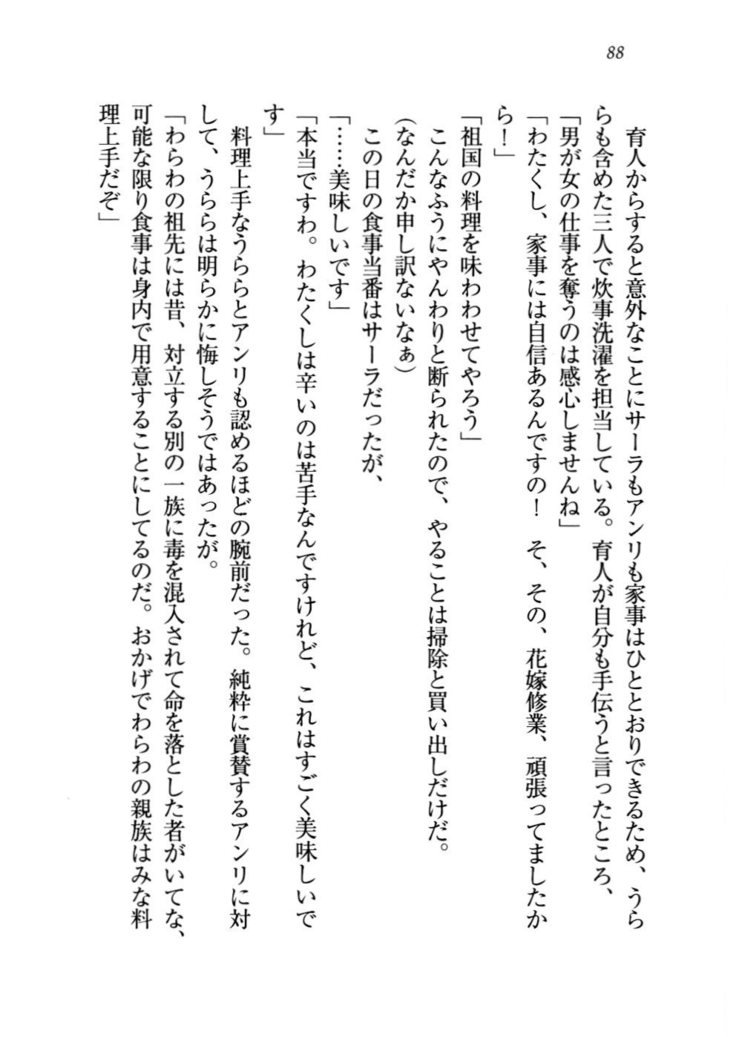 88
育人からすると意外なことにサーラもアンリも家事はひととおりできるため、うら
らも含めた三人で炊事洗濯を担当している。育人が自分も手伝うと言ったところ、
「男が女の仕事を奪うのは感心しませんね」
「わたくし、家事には自信あるんですの！　そ、その、花嫁修業、頑張ってましたか
ら！」
「祖国の料理を味わわせてやろう」
こんなふうにやんわりと断られたので、やることは掃除と買い出しだけだ。
(なんだか申し訳ないなぁ)
この日の食事当番はサーラだったが、
「……美味しいです」
「本当ですわ。わたくしは辛いのは苦手なんですけれど、これはすごく美味しいで
す」
料理上手なうららとアンリも認めるほどの腕前だった。純粋に賞賛するアンリに対
して、うららは明らかに悔しそうではあったが。
「わらわの祖先には昔、対立する別の一族に毒を混入されて命を落とした者がいてな、
可能な限り食事は身内で用意することにしてるのだ。おかげでわらわの親族はみな料
理上手だぞ」